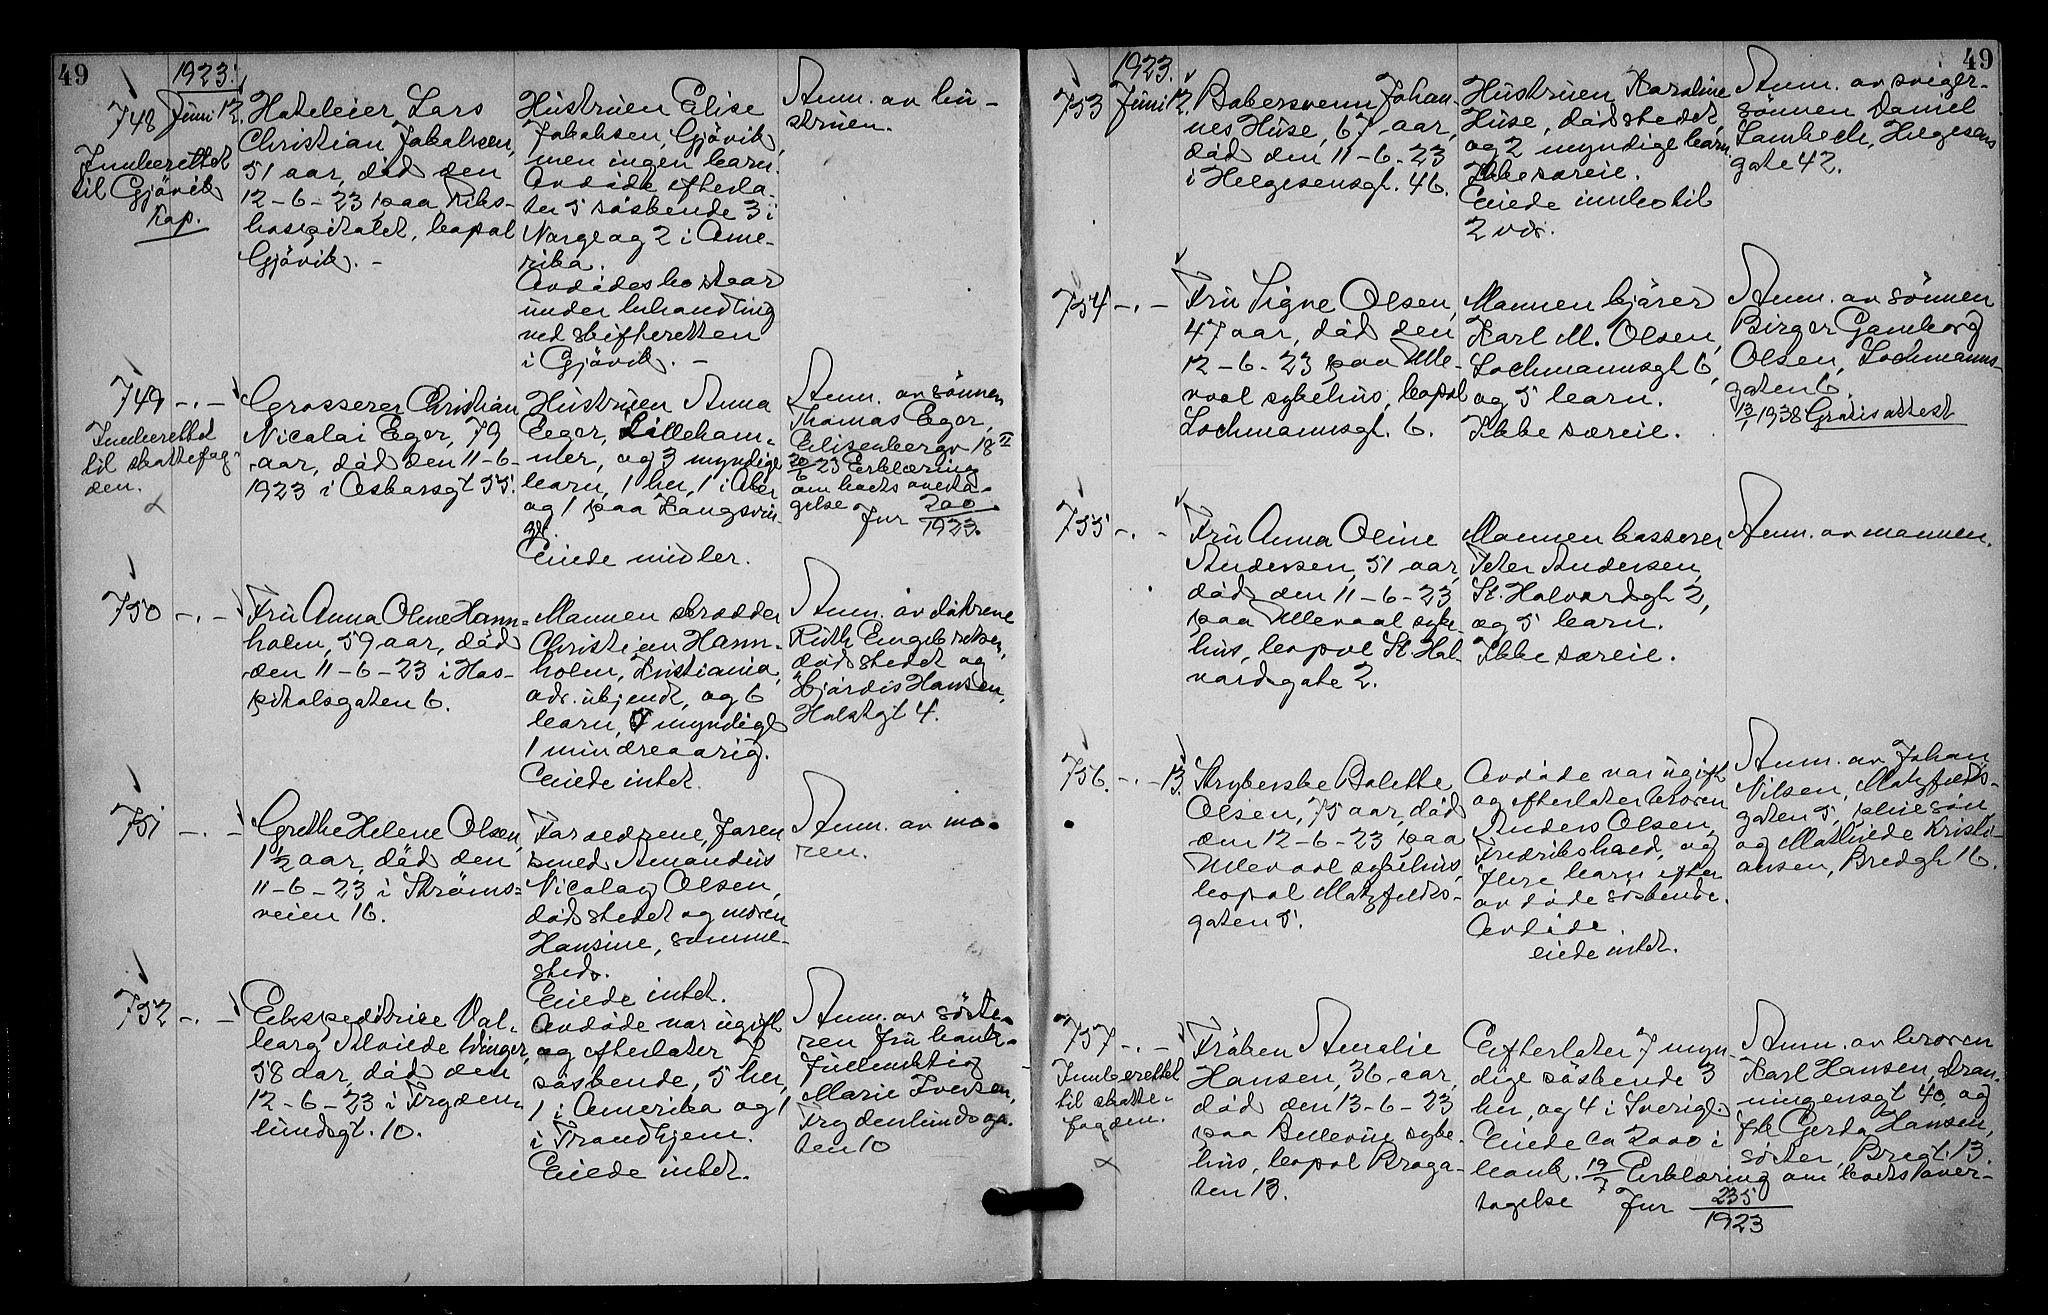 49
1923.
748
Juni 12.
Innberettet
til Gjövik
kap.
Hoteleier Lars
Christian Jakobsen,
51 aar, död den
12-6-23 paa Riks-
hospitalet, bopæl
Gjövik. -
Hustruen Elise
Jakobsen, Gjövik,
men ingen barn.
Avdöde efterla-
ter 5 söskende 3 i
Norge og 2 i Ame-
rika.
Avdödes bo staar
under behandling
ved skifteretten
i Gjövik. -
Anm. av hu-
struen.
749 -.-
Innberettet
til skattefog-
den.
Grosserer Christian
Nicolai Eger, 79
aar, död den 11-6-
1923 i Oskarsgt 55.
Hustruen Anna
Eger, Lilleham-
mer, og 3 myndige
barn, 1 her, 1 i Aker
og 1 paa Kongsvin-
ger.
Eiede midler.
Anm. av sönnen
Thomas Eger,
Elisenbergv 18 II
20/6 23 Erklæring
om boets overta-
gelse
Jnr 200/1923.
750 -.-
Fru Anna Oline Hann-
holm, 59 aar, död
den 11-6-23 i Hos-
pitalsgaten 6.
Mannen skrædder
Christian Hann-
holm, Kristiania,
adr. ukjendt, og 6
barn, 5 myndige
1 mindreaarig.
Eiede intet.
Anm. av döktrene
Ruth Engebretsen,
dödsstedet og
Hjördis Hansen,
Holstgt 4.
751 -.-
Grethe Helene Olsen,
1 1/2 aar, död den
11-6-23 i Ströms-
veien 16.
Forældrene, Faren
smed Amandus
Nicolay Olsen,
dödsstedet og moren
Hansine, samme-
steds.
Eiede intet.
Anm. av mo-
ren.
752 -.-
Ekspeditrise Val-
borg Alvilde Winger,
58 aar, död den
12-6-23 i Fryden-
lundsgt. 10.
Avdöde var ugift
og efterlater 7
söskende, 5 her,
1 i Amerika og 1
i Trondhjem.
Eiede intet.
Anm. av söste-
ren fru bank-
fuldmektig
Marie Iversen,
Frydenlundsga-
ten 10
49
1923.
753
Juni 12.
Bokersvenn Johan-
nes Huse, 67 aar,
död den 11-6-23
i Helgesensgt. 46.
Hustruen Karoline
Huse, dödsstedet,
og 2 myndige barn.
Ikke særeie.
Eiede innbo til
2 vær.
Anm. av sviger-
sönnen Daniel
Lambech, Helgesens
gate 42.
754 -.-
Fru Signe Olsen,
47 aar, död den
12-6-23 paa Ulle-
vaal sykehus, bopæl
Lochmannsgt. 6.
Mannen kjörer
Karl M. Olsen,
Lochmannsgt 6,
og 5 barn.
Ikke særeie.
Anm. av sönnen
Birger Gamborg
Olsen, Lochmanns-
gaten 6.
13/1 1938 Gratis attest
755 -.-
Fru Anna Oline
Andersen, 51 aar,
död den 11-6-23
paa Ullevaal syke-
hus, bopæl St. Hal-
vardsgate 2.
Mannen kasserer
Peter Andersen,
St. Halvardsgt 2,
og 5 barn.
Ikke særeie.
Anm. av mannen.
756. -.- 13.
Strykerske Bolette
Olsen, 75 aar, död
den 12-6-23 paa
Ullevaal sykehus,
bopæl Motzfeldts-
gaten 5.
Avdöde var ugift
og efterlater broren
Anders Olsen,
Fredrikshald, og
flere barn efter
avdöde söskende.
Avdöde
eiede intet.
Anm. av Johan
Nilsen, Motzfeldts-
gaten 5, pleiesön
og Mathilde Kristi-
ansen, Bredgt 16.
757 -.-
Innberettet
til skatte-
fogden.
Fröken Amalie
Hansen, 36 aar,
död den 13-6-23
paa Bellevue syke-
hus, bopæl Broga-
ten 13.
Efterlater 7 myn-
dige söskende 3
her, og 4 i Sverige.
Eiede ca 2000 i
bank. 19/7 Erklæring om boets over-
tagelse Jnr 235/1923
Anm. av broren
Karl Hansen, Dron-
ningensgt 40, og
frk Gerda Hansen,
söster, Brogt. 13.